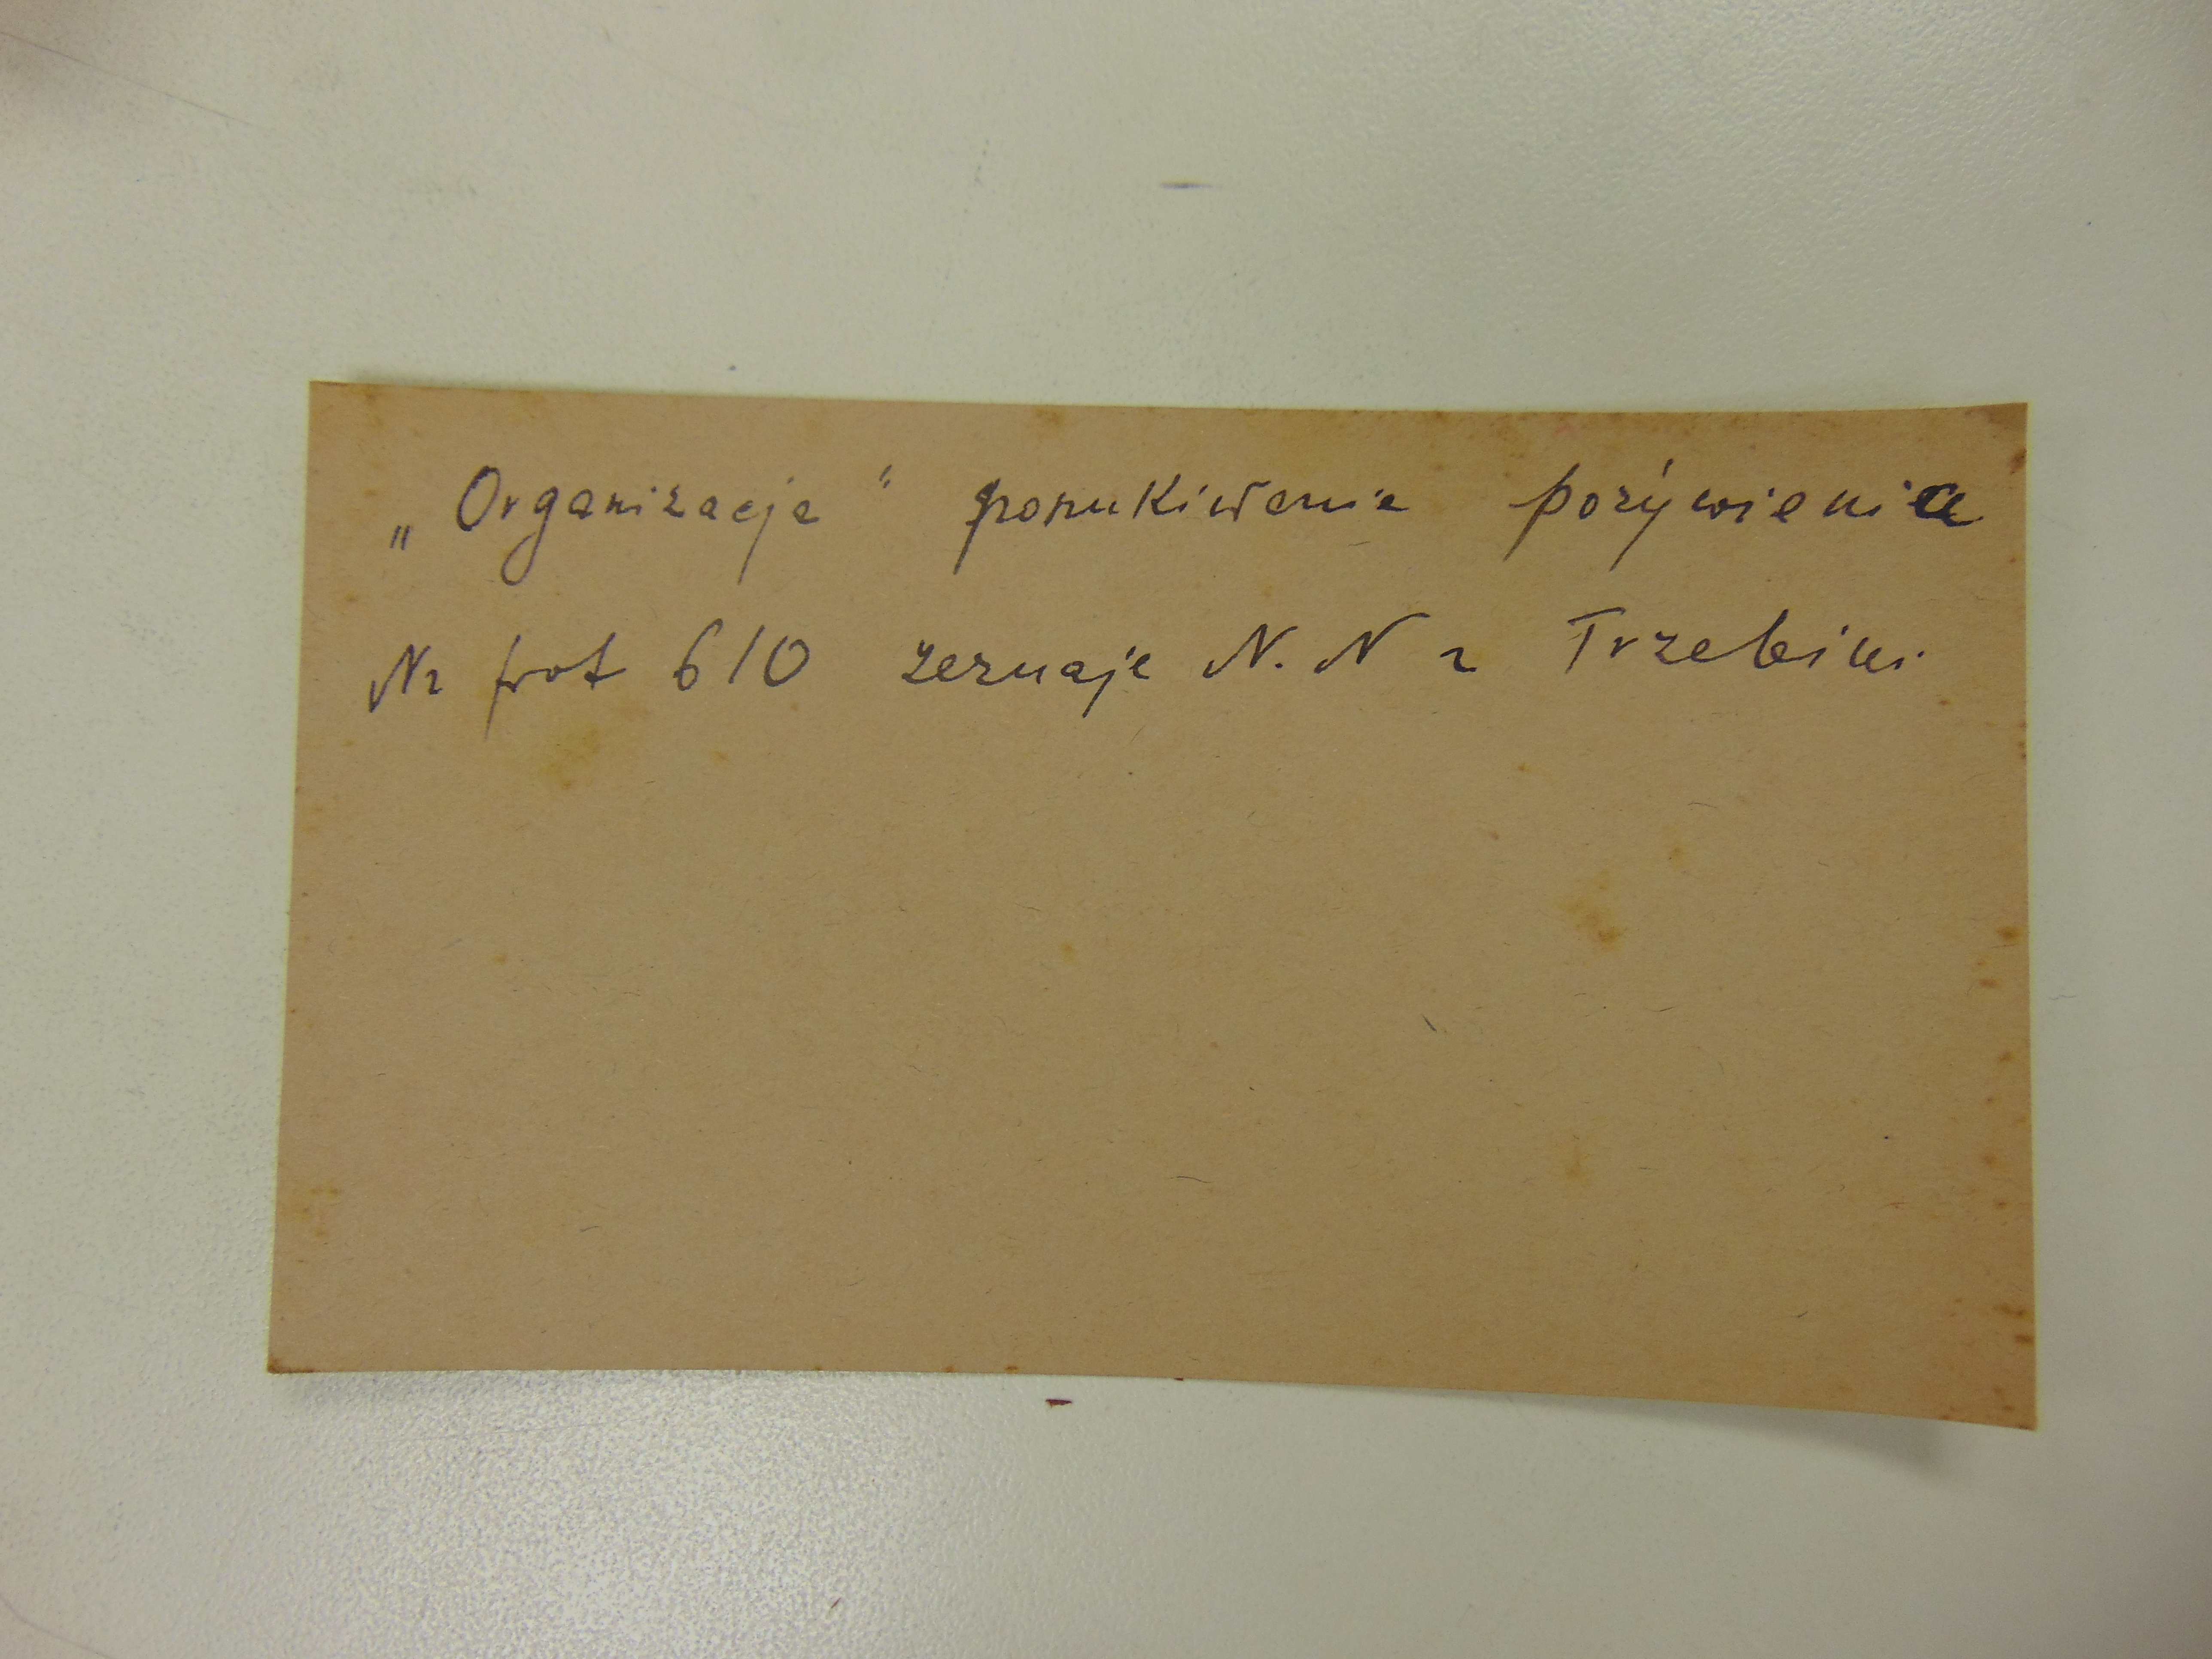 „Organizacja" poszukiwanie pożywienia
Nr prot 610 zeznaje N. N z Trzebini